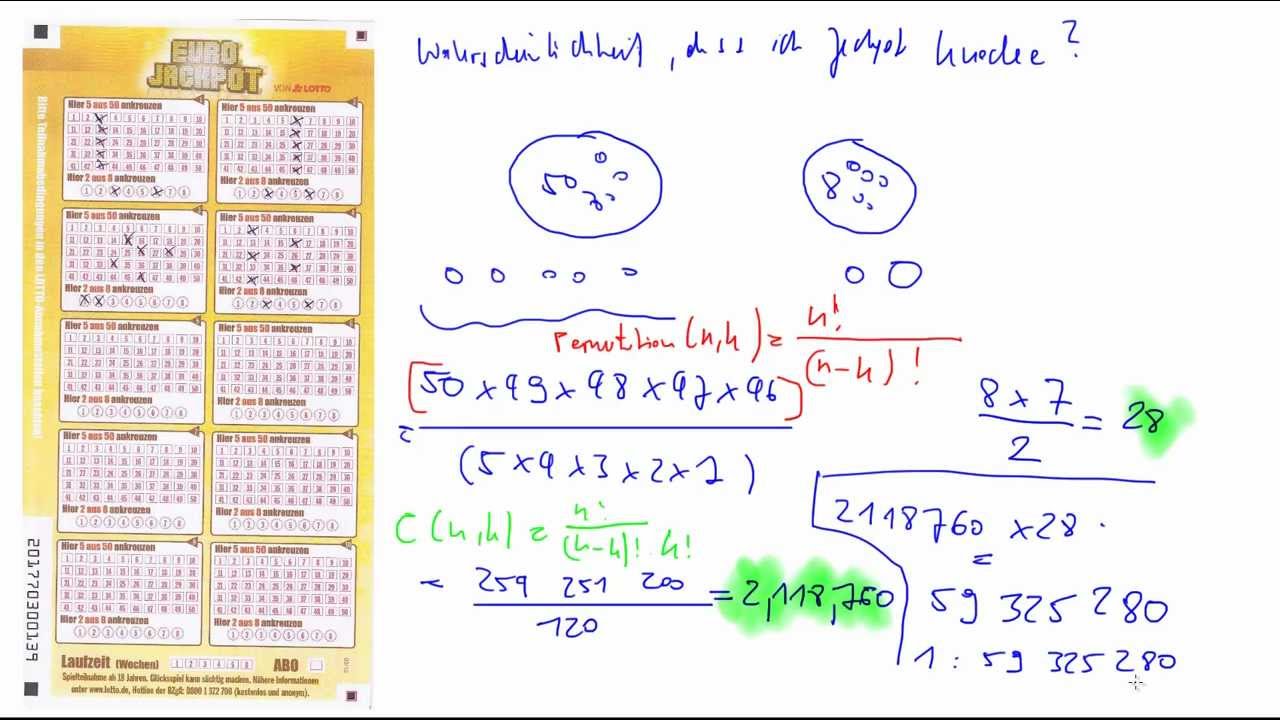 Wahrscheinlichkeit, dass ich Jackpot knacke?
EURO
JACKPOT
VON LOTTO
Hier 5 aus 50 ankreuzen
Hier 5 aus 50 ankreuzen
Hier 2 aus 8 ankreuzen
Hier 2 aus 8 ankreuzen
Hier 5 aus 50 ankreuzen
Hier 5 aus 50 ankreuzen
Hier 2 aus 8 ankreuzen
Hier 2 aus 8 ankreuzen
Hier 5 aus 50 ankreuzen
Hier 5 aus 50 ankreuzen
Hier 2 aus 8 ankreuzen
Hier 2 aus 8 ankreuzen
Hier 5 aus 50 ankreuzen
Hier 5 aus 50 ankreuzen
Hier 2 aus 8 ankreuzen
Hier 2 aus 8 ankreuzen
Hier 5 aus 50 ankreuzen
Hier 5 aus 50 ankreuzen
Hier 2 aus 8 ankreuzen
Hier 2 aus 8 ankreuzen
Laufzeit (Wochen) 1 2 3 4 5 8 ABO
Spielteilnahme ab 18 Jahren. Glücksspiel kann süchtig machen. Nähere Informationen
unter www.lotto.de, Hotline der BZgA: 0800 1 372 700 (kostenlos und anonym).
201770300139
50
8
Permutation (n,k) = n! / (n-k)!
[50 x 49 x 48 x 47 x 46]
= (5 x 4 x 3 x 2 x 1)
8 x 7 / 2 = 28
C(n,k) = n! / (n-k)! k!
= 254 251 200 / 120 = 2,118,760
2118760 x 28
=
59 325 280
1 : 59 325 280